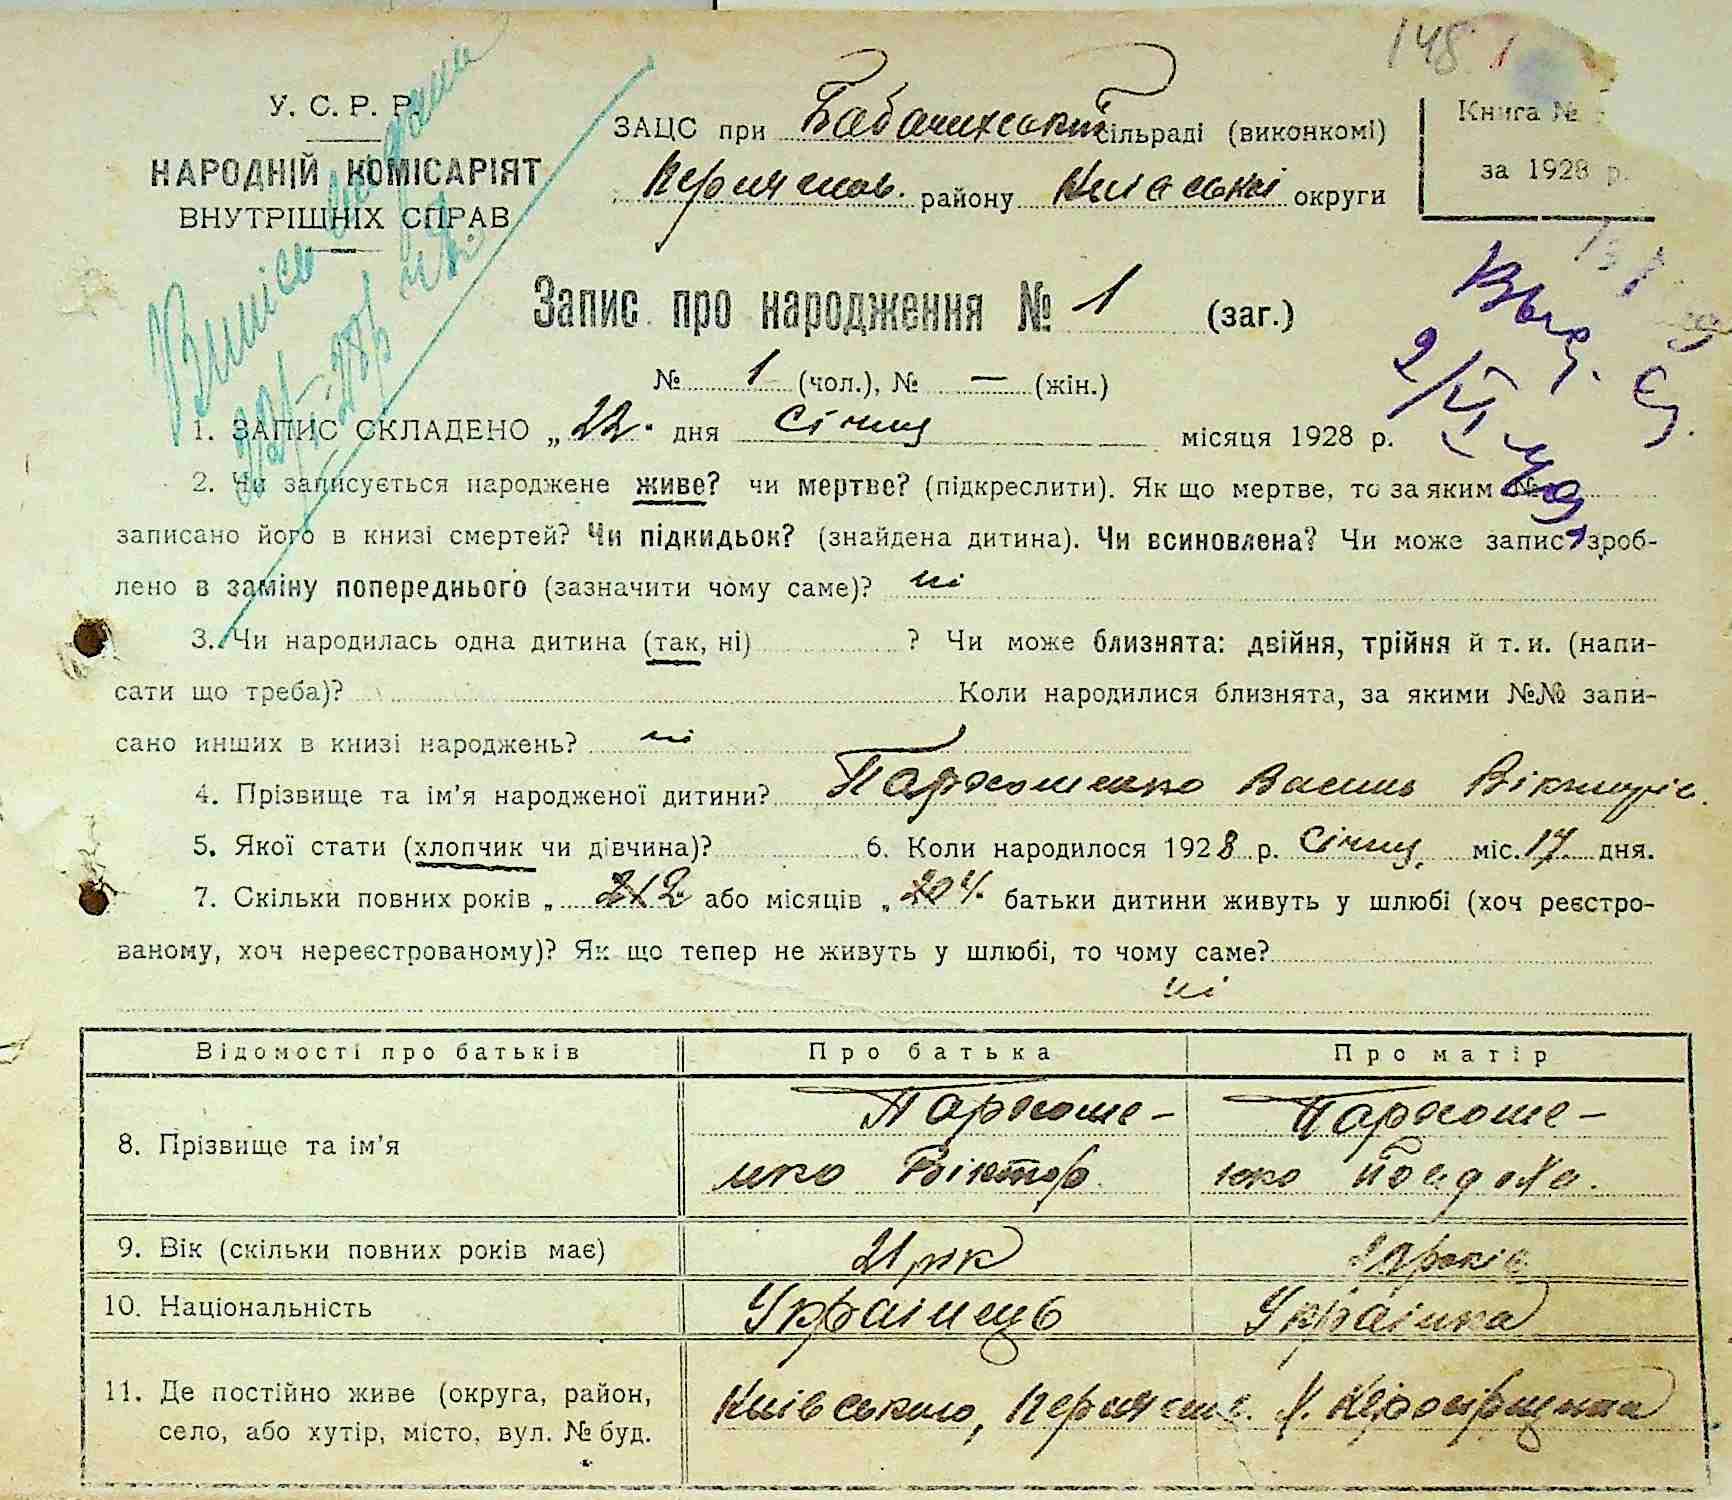 148
У. С. Р. Р.
НАРОДНІЙ КОМІСАРІЯТ
ВНУТРІШНІХ СПРАВ
ЗАЦС при Бабачихський сільраді (виконкомі)
району Київської округи
Книга №
за 1928 р.
Запис про народження № 1 (заг.)
№ 1 (чол.), № — (жін.)
1. ЗАПИС СКЛАДЕНО „ 22. дня Січня місяця 1928 р.
2. Чи записується народжене живе? чи мертве? (підкреслити). Як що мертве, то за яким №
записано його в книзі смертей? Чи підкидьок? (знайдена дитина). Чи всиновлена? Чи може запис зроб-
лено в заміну попереднього (зазначити чому саме)? ні
3. Чи народилась одна дитина (так, ні) ? Чи може близнята: двійня, трійня й т. и. (напи-
сати що треба)? Коли народилися близнята, за якими №№ запи-
сано инших в книзі народжень? ні
4. Прізвище та ім'я народженої дитини? Пархоменко Василь Вікторів.
5. Якої стати (хлопчик чи дівчина)? 6. Коли народилося 1928 р. Січня міс. 17 дня.
7. Скільки повних років „ 2 або місяців „ батьки дитини живуть у шлюбі (хоч реєстро-
ваному, хоч нереєстрованому)? Як що тепер не живуть у шлюбі, то чому саме?
ні
Відомості про батьків Про батька Про матір
8. Прізвище та ім'я Пархоме- Пархоме-
нко Віктор. нко
9. Вік (скільки повних років має) 21 рік років
10. Національність Українець Українка
11. Де постійно живе (округа, район, Київського,
село, або хутір, місто, вул. № буд.